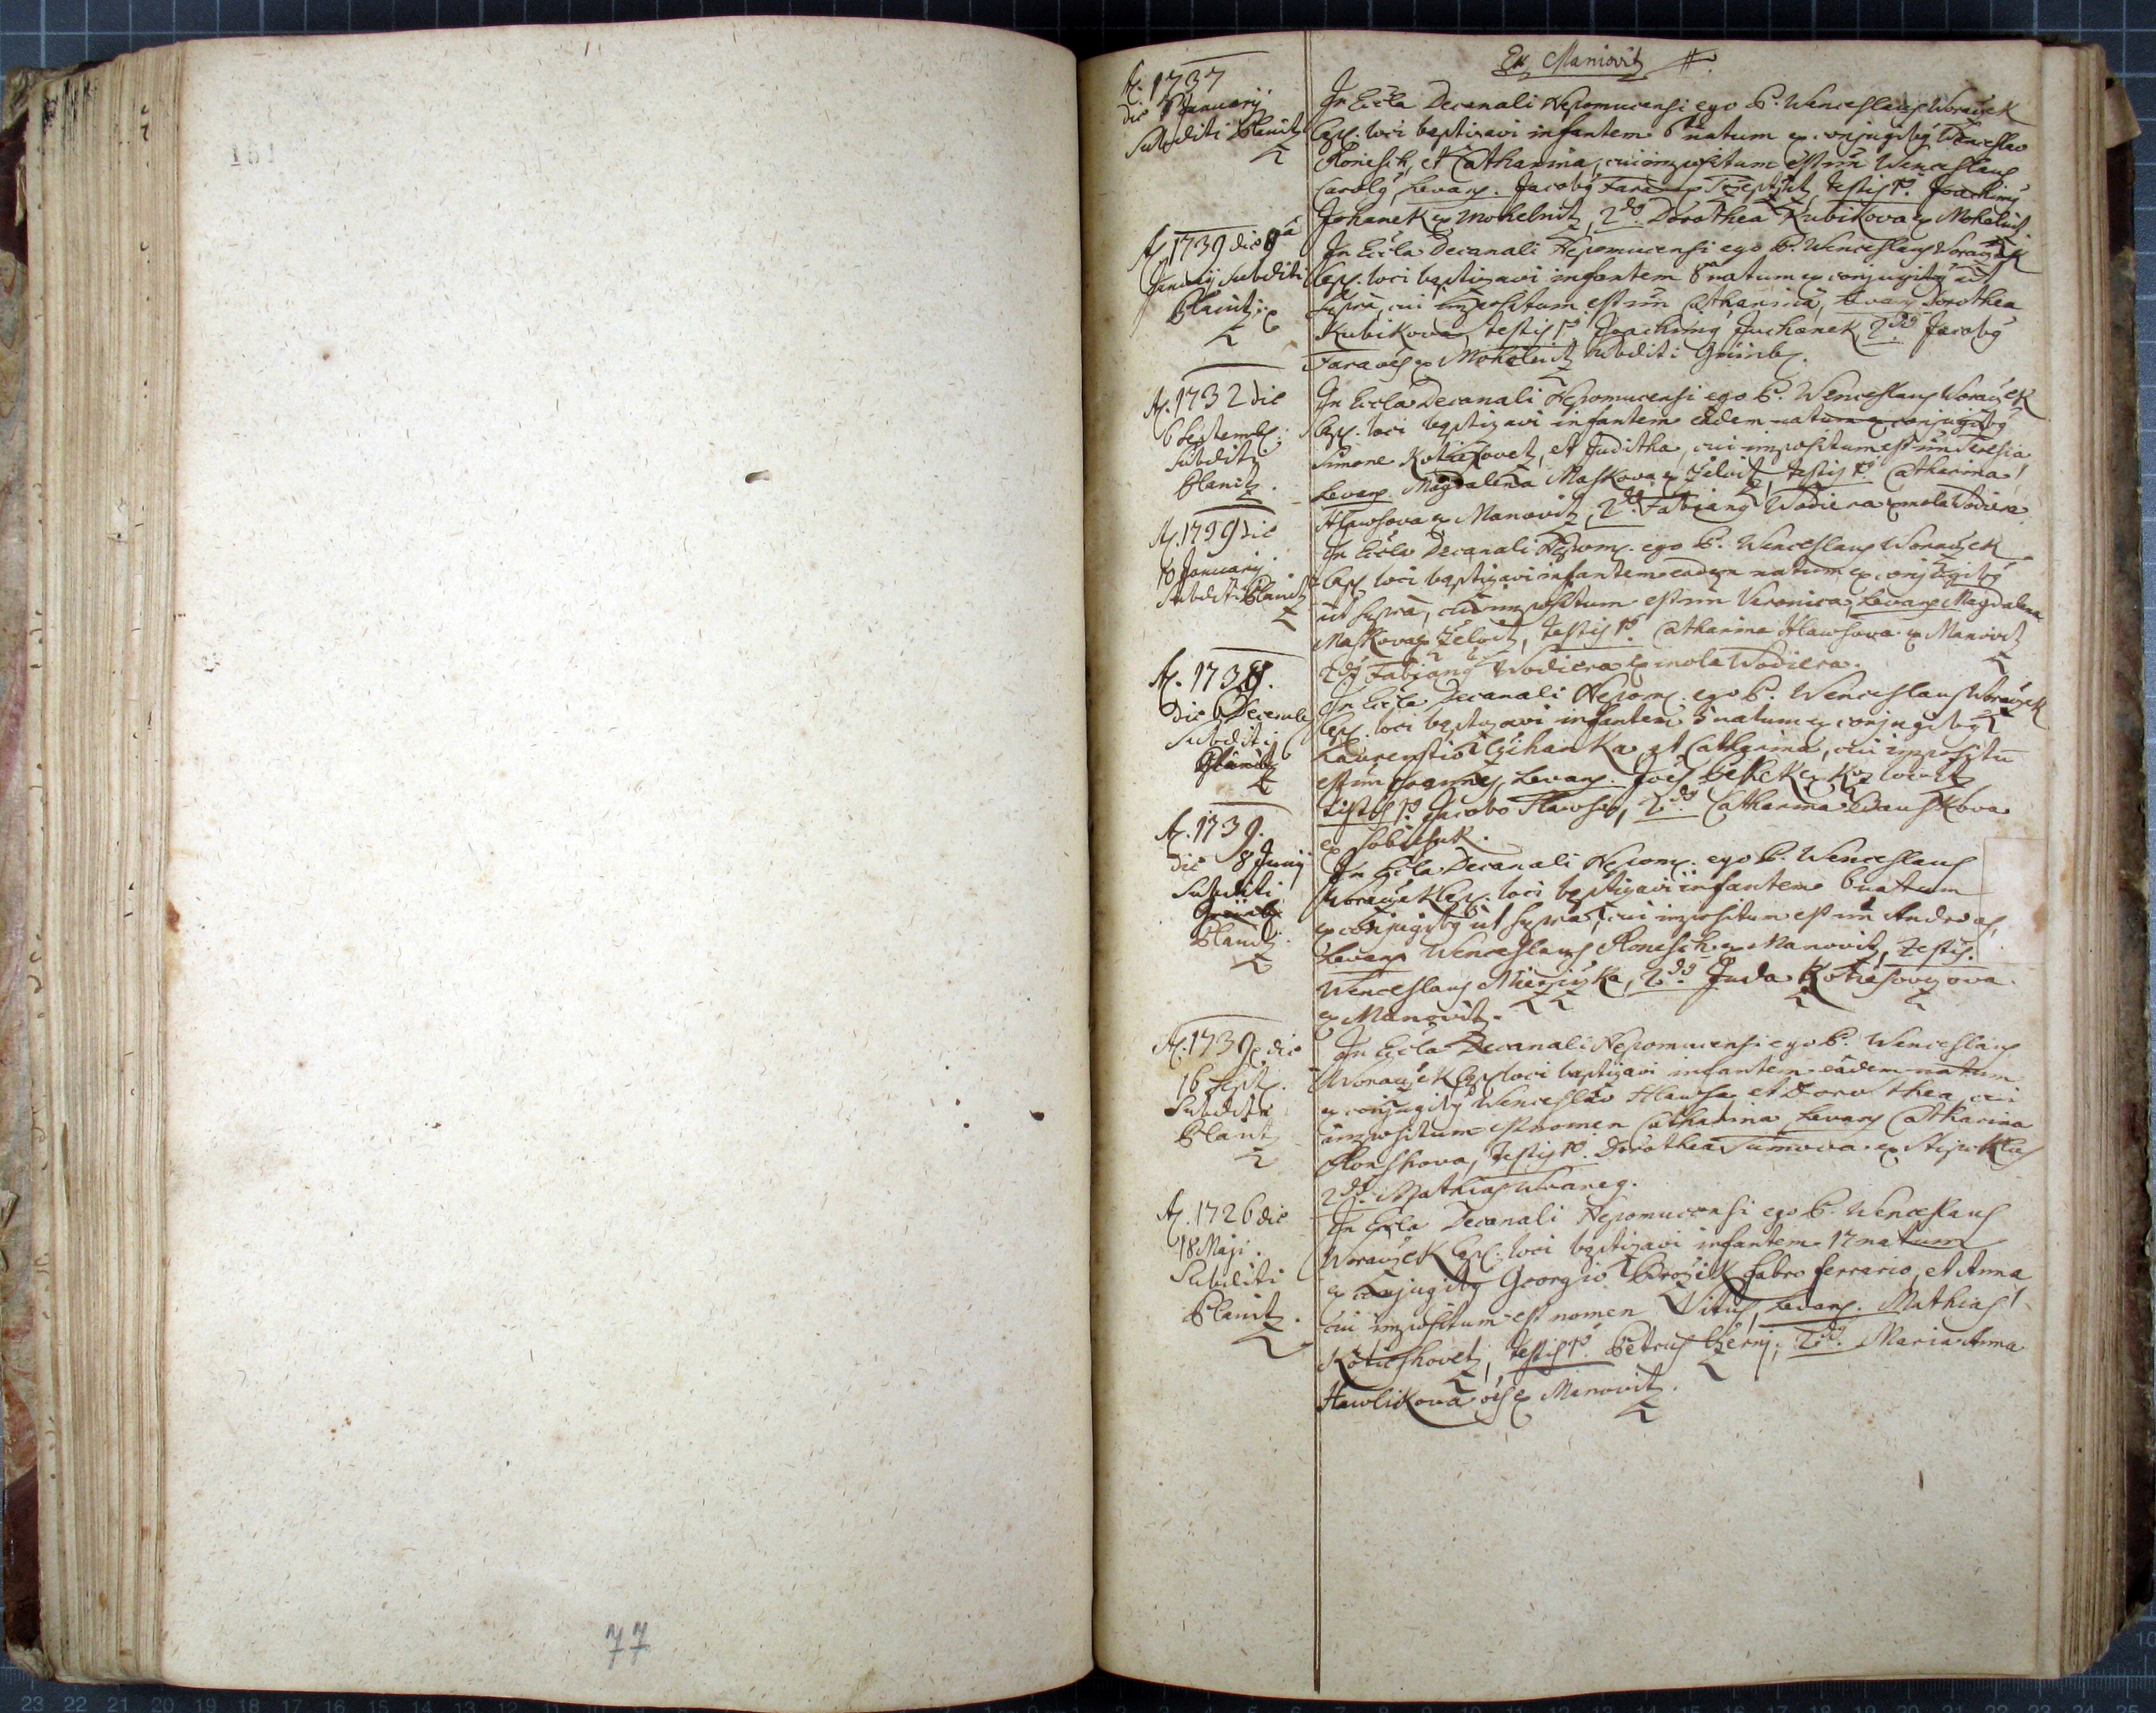 151
77
Ex Maniovitz
A. 1737
die 7 Januarij
Subditi Planitz
In Eccla Decanali Nepomucensi ego P. Wenceslaus Woraczek
Cap. loci baptizavi infantem 6 natum ex conjugibus Wenceslao
Ronesch, et Catharina, cui impositum est nn Wenceslaus
Carolus, Levans. Jacobus Fara ex testis 1us. Joachimus
Johanek ex Mohelnitz, 2dus Dorothea Kubikova ex Mohelnitz.
A. 1739 die 9a
Januarij subditi
Planitz
In Eccla Decanali Nepomucensi ego P. Wenceslaus Woraczek
Cap. loci baptizavi infantem 8 natum ex conjugibus ut
supra, cui impositum est nn Catharina, Levans Dorothea
Kubikova, testis 1us Joachimus Juchanek, 2dus Jacobus
Fara oes ex Mohelnitz subditi Grünb.
A. 1732 die
6 Septemb.
Subditi
Planitz.
In Eccla Decanali Nepomucensi ego P. Wenceslaus Woraczek
Cap. loci baptizavi infantem eadem natum ex conjugibus
Simone Kotieschovetz, et Juditha, cui impositum est nn Teresia
Levans. Magdalena Maskova ex Želvitz, testis 1us Catharina
Hlawsova ex Manovitz, 2dus Fabianus Wodiera ex mola Wodiera.
A. 1739 die
10 Januarij.
Subditi Planitz
In Eccla Decanali Nepom. ego P. Wenceslaus Woraczek
Cap. loci baptizavi infantem eadem natum ex conjugibus
ut supra, cui impositum est nn Veronica, Levans Magdalena
Maskova ex Želvitz, testis 1us Catharina Hlawsova ex Manovitz
2dus Fabianus Wodiera ex mola Wodiera.
A. 1738.
die 6 Decemb.
Subditi
Planitz
In Eccla Decanali Nepom. ego P. Wenceslaus Woraczek
Cap. loci baptizavi infantem 5 natum ex conjugibus
Laurentio Czihanka, et Catharina, cui impositu
est nn Joannes, Levans. Joes
testis 1us Jacobo Hlawsa, 2dus Catharina Bauschkova
ex Sobiesuk.
A. 1739.
die 8 Junij
Subditi
Grünb.
Planitz.
In Eccla Decanali Nepom. ego P. Wenceslaus
Woraczek Cap. loci baptizavi infantem 6 natum
ex conjugibus ut supra, cui impositum est nn Andreas,
Levans Wenceslaus Ronesch ex Manovitz, testis.
Wenceslaus, 2dus Juda Kotiesovczova
ex Manovitz.
A. 1739 die
16 Sept.
Subditi
Planitz
In Eccla Decanali Nepomucensi ego P. Wenceslaus
Woraczek Cap. loci baptizavi infantem eadem natum
ex conjugibus Wenceslao Hlawsa et Dorothea, cui
impositum est nomen Catharina Levans Catharina
Ronshova, testis 1us. Dorothea Tumova ex
2dus. Mathias
A. 1726 die
18 Maji.
Subditi
Planitz.
In Eccla Decanali Nepomucensi ego P. Wenceslaus
Woraczek Cap. loci baptizavi infantem 17 natum
ex conjugibus Georgio Brožik fabro ferrario, et Anna
cui impositum est nomen Vitus, Levans. Mathias
Kotieshovetz, testis 1us Petrus Czerny, 2dus. Maria Anna
Hawlikova oes ex Manovitz.